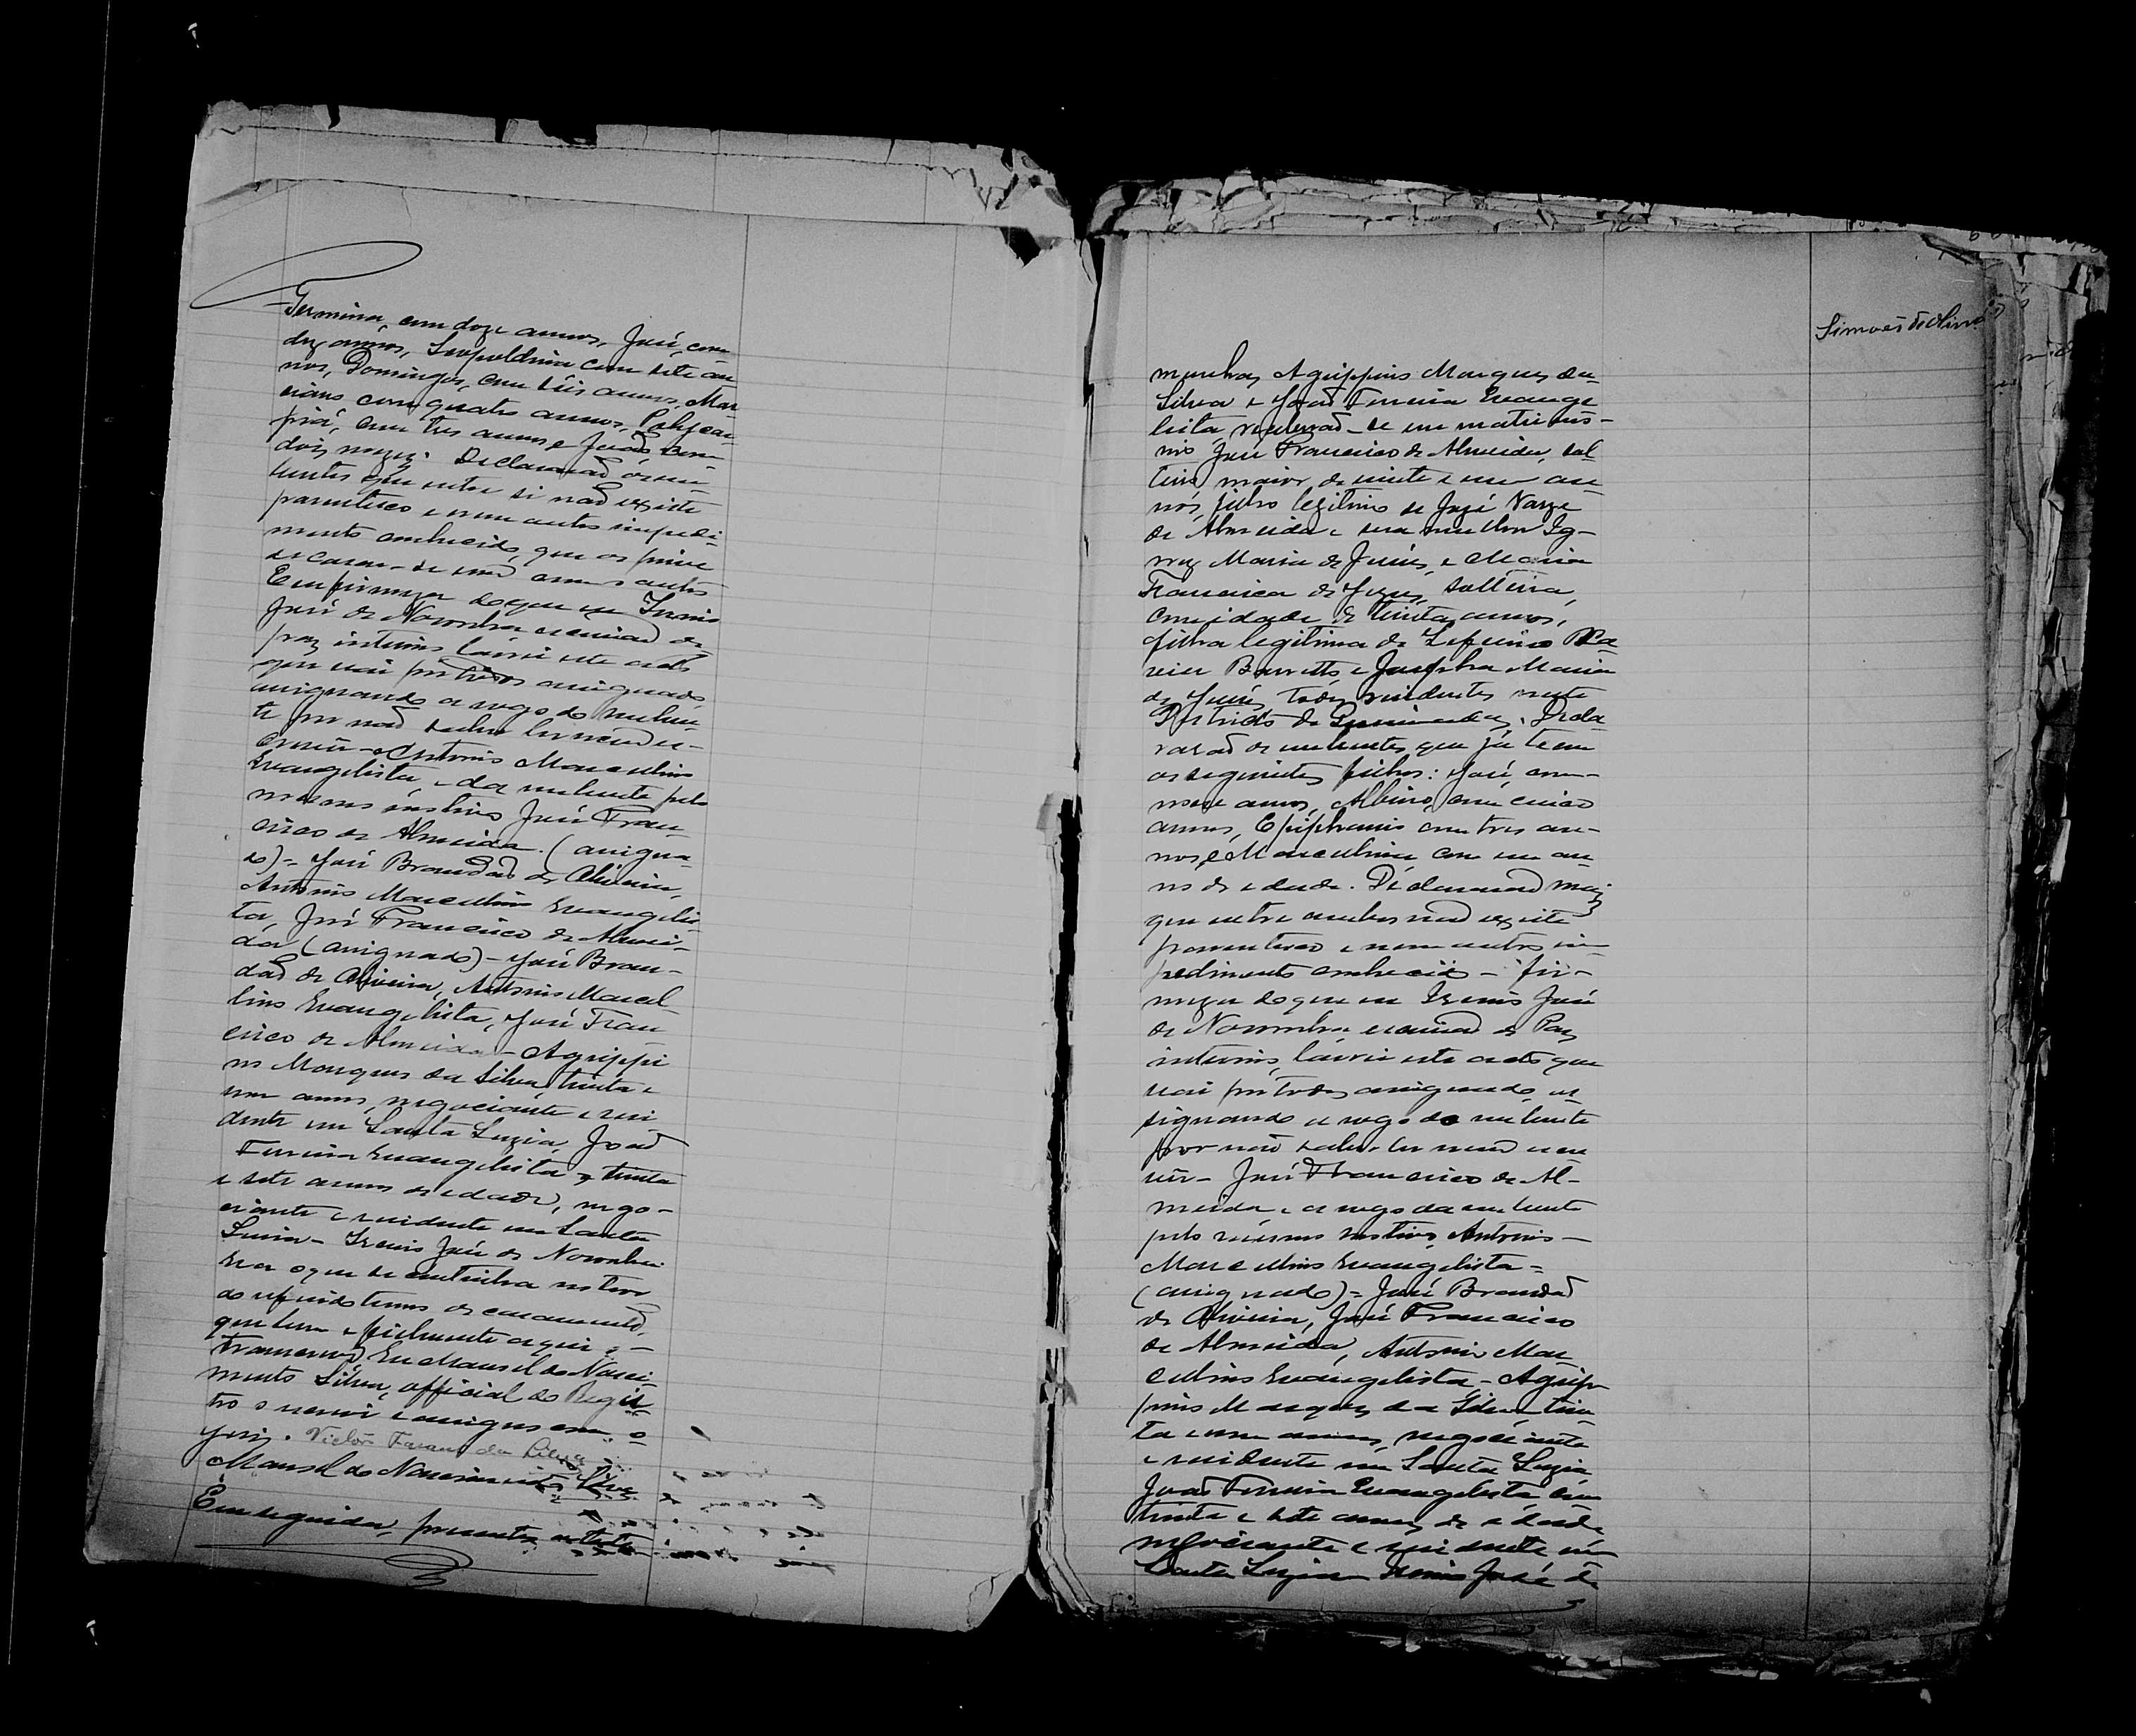 Firmina, com doze annos, José, com
dez annos, Leopoldina com sete an-
nos, Domingos, com seis annos, Mar-
ciano com quatro annos, Polycar-
pio, com tres annos e João com
dois mezes. Declararão os nu-
bentes que entre si não existe
parentesco e nem outro impedi-
mento conhecido, que os prive
de casar-se um com o outro
Em firmeza do que eu Irenio
José de Noronha escrivão de
paz interino lavrei este acto
que vai por todos assignado,
assignando a rogo do nuben-
te por não saber ler nem es-
crever Antonio Marcelino
Evangelista, e da nubente pelo
mesmo motivo José Fran-
cisco de Almeida. (assigna-
do) = José Brandão de Oliveira,
Antonio Marcelino Evangelis-
ta, José Francisco de Almei-
da, (assignado) - José Bran-
dão de Oliveira, Antonio Marcel-
lino Evangelista, José Fran-
cisco de Almeida - Agrippi-
no Marques da Silva, trinta e
um annos, negociante e resi-
dente em Santa Luzia, João
Ferreira Evangelista, trinta
e sete annos de edade, nego-
ciante e residente em Santa
Luzia - Irenio José de Noronha
Era o que se continha no theor
do referido termo de casamento,
que bem e fielmente aqui
transcrevo. Eu Manoel do Nasci-
mento Silva, official do Regis-
tro o escrevi e assigno com o
juiz. Victor da Silva
Manoel do Nascimento Silva
Em seguida, presentes as teste-
Simões de Oliveira
munhas Agrippino Marques da
Silva e João Ferreira Evange-
lista, receberão-se em matrimo-
nio José Francisco de Almeida, sol-
teiro, maior de vinte e um an-
nos, filho legitimo de José
de Almeida e sua mulher Ig-
nez Maria de Jesus, e Maria
Francisca de Jesus, solteira,
com idade de trinta annos,
filha legitima de Zeferino
Barretto e Josepha Maria
de Jesus, todos residentes neste
Districto de Decla-
rarão os nubentes que já tem
os seguintes filhos: José, com
nove annos, Albino, com cinco
annos, Epiphanio com tres an-
nos, e Marcelina com um an-
no de edade. Declararão mais
que entre ambos não existe
parentesco e nem outro im-
pedimento conhecido - fir-
meza do que eu Irenio José
de Noronha, escrivão de Paz
interino, lavrei este acto que
vai por todos assignado, as-
signando a rogo do nubente
por não saber ler nem escre-
ver - José Francisco de Al-
meida e a rogo da nubente
pelo mesmo motivo, Antonio
Marcelino Evangelista =
(assignado) = José Brandão
de Oliveira, José Francisco
de Almeida, Antonio Mar-
celino Evangelista - Agrip-
pino Marques da Silva trin-
ta e um annos, negociante
e residente em Santa Luzia
João Ferreira Evangelista com
trinta e sete annos de edade,
negociante e residente em
Santa Luzia Irenio José de